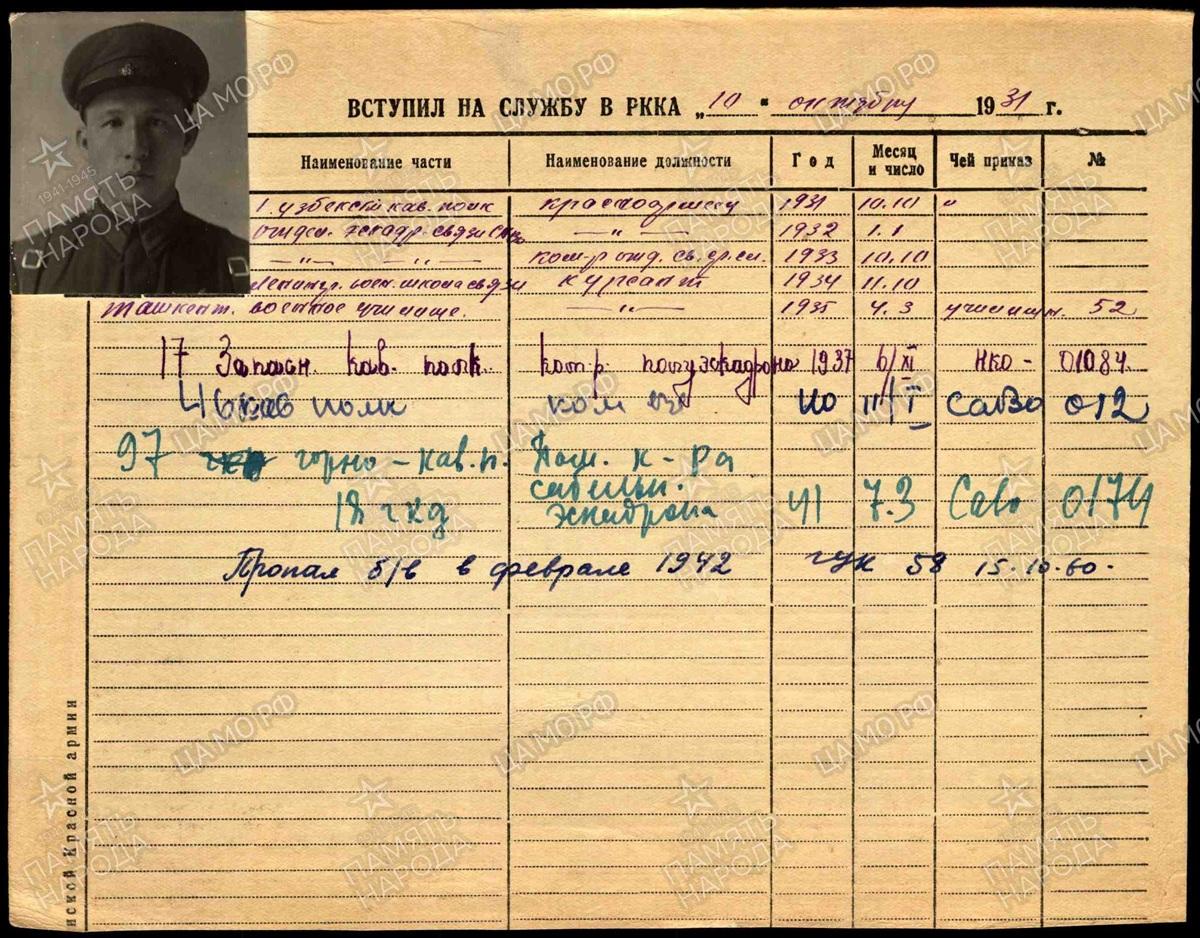 ВСТУПИЛ НА СЛУЖБУ В РККА „10" октября 1931 г.
Наименование части Наименование должности Год Месяц и число Чей приказ №
1. узбекский кав. полк красноармеец 1931 10.10 "
отдел. эскадр. связи —"— 1932 1.1
—"— —"— ком-р отд. св. 1933 10.10
Ленингр. воен. школа связи курсант 1934 11.10
Ташкент. военное училище. —"— 1935 4.3 училищ. 52
17 Запасн. кав. полк. ком-р. полуэскадрона 1937 6/XI НКО - 01084.
46 кав полк ком 40 11/I САВО 012
97 горно-кав. п. Пом. к-ра
сабельн.
18 гкд эскадрона 41 7.3 Саво 0174
Пропал б/в в феврале 1942 ГУК 58 15.10.60.
нской Красной армии
1941-1945
ПАМЯТЬ НАРОДА
ЦАМО.РФ